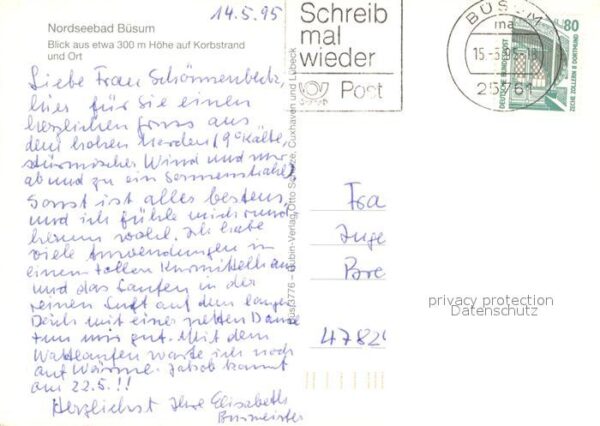 14.5.95
Nordseebad Büsum
Blick aus etwa 300 m Höhe auf Korbstrand
und Ort
Liebe Frau Schönnenbeck,
hier für sie einen
herzlichen Gruss aus
dem hohen Norden (9° Kälte,
stürmischer Wind und nur
ab und zu ein Sonnenstrahl)
Sonst ist alles bestens,
und ich fühle mich rund
herum wohl. Ich habe
viele Anwendungen in
einem tollen Kurmittelhaus
und das Laufen in der
reinen Luft auf dem langen
Deich mit einer netten Dame
tun mir gut. Mit dem
Wattlaufen warte ich noch
auf Wärme. Jakob kommt
am 22.5.!!
Herzlichst Ihre Elisabeth
Burmeister
Schreib
mal
wieder
Post
BÜSUM
ma
15.-5.95-18
25761
80
DEUTSCHE BUNDESPOST
ZECHE ZOLLERN II DORTMUND
Büs 3776 - Rubin-Verlag Otto Schulze, Cuxhaven und Lübeck
Fra
Inge
Bre
47824
privacy protection
Datenschutz